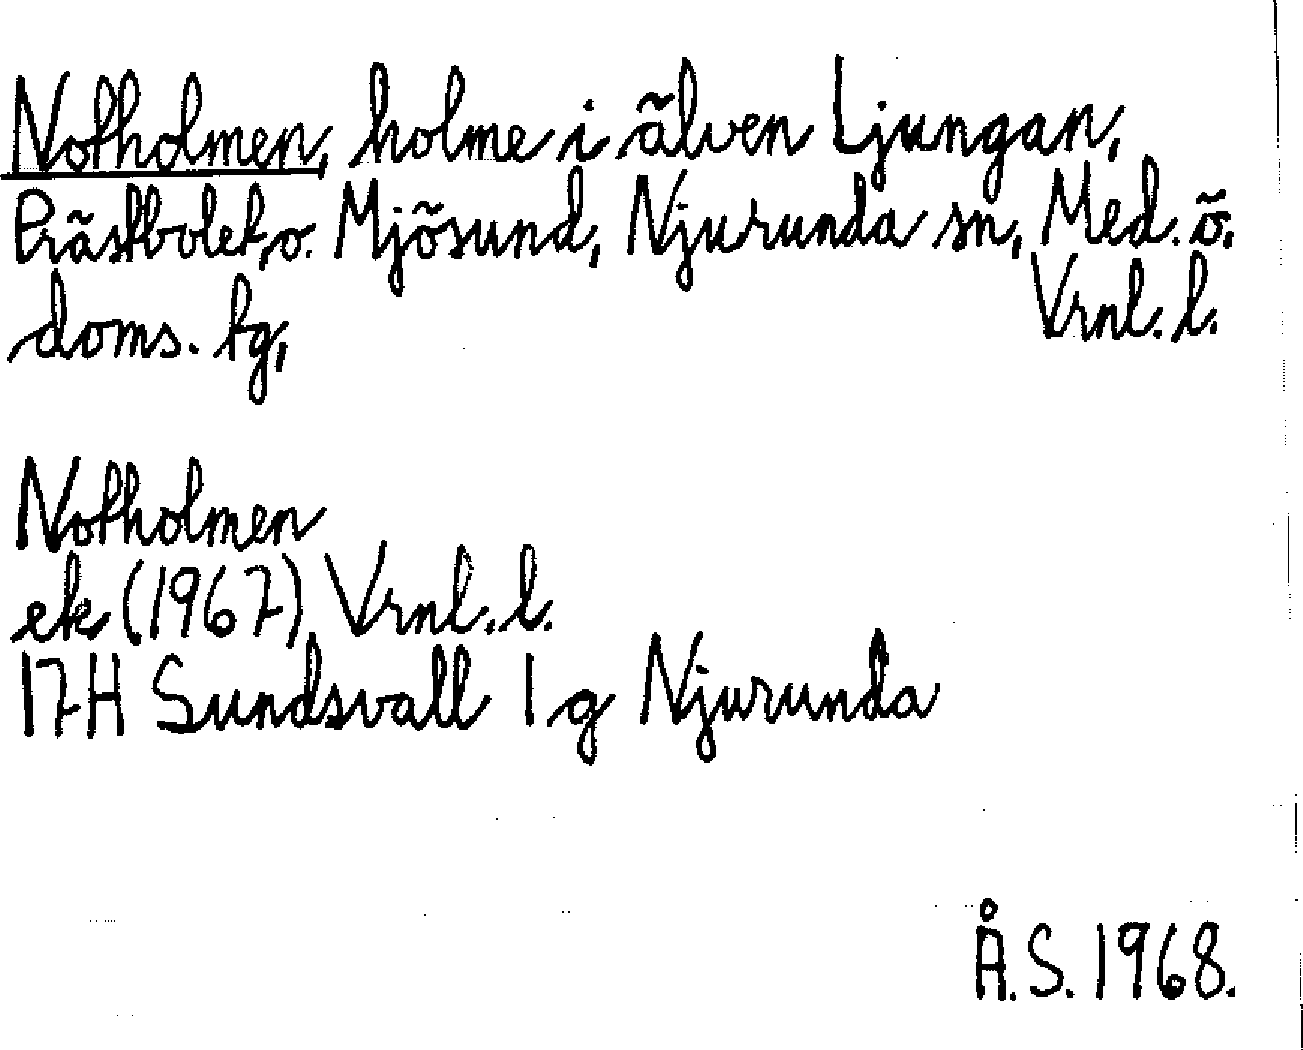 Notholmen, holme i älven Ljungan,
Prästbolet, o. Mjösund, Njurunda sn, Med. ö.
doms. tg, Vrnl. l.
Notholmen
ek (1967) Vrnl. l.
17H Sundsvall 1 g Njurunda
Å. S. 1968.